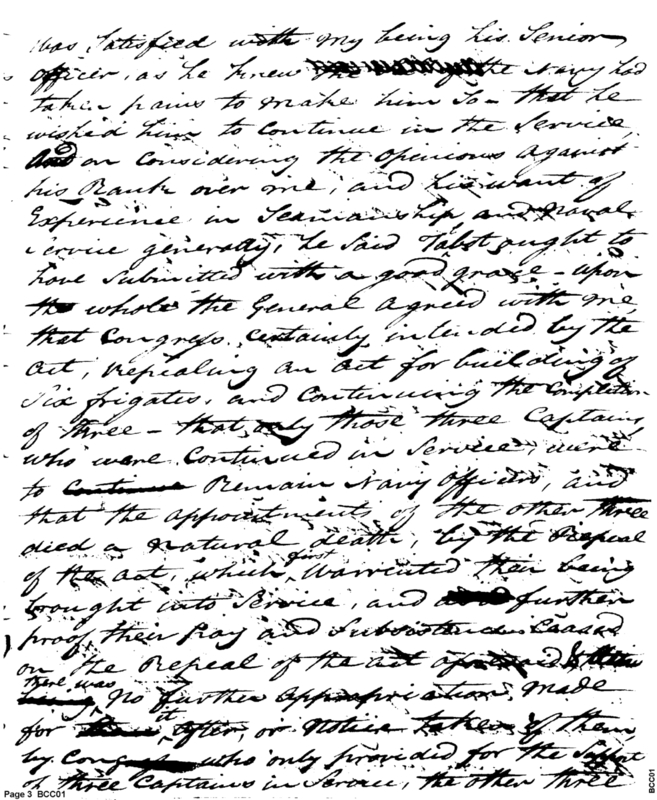 was Satisfied with my being his Senior
Officer, as he knew the Navy had
taken pains to make him so - that he
wished him to Continue in the Service,
And on Considering the opinions against
his Rank over me, and his want of
Experience in Seamanship, and Naval
Service generally, he Said Talbot ought to
have Submitted with a good grace - upon
the whole the General agreed with me,
that Congress, Certainly intended by the
act, repealing an Act for building of
Six frigates, and Continuing the Completion
of three - that only those three Captains,
who were Continued in Service, were
to Continue Remain Navy Officers, and
that the appointments of the other three
died a natural death, by the Repeal
of the act, which first Warrented their being
brought into Service, and further
proof, their Pay and Subsistence Ceased
on the Repeal of the act aforesaid
there was No further appropriation, Made
for it after, or Notice taken of them,
by Congress who only provided for the Support
of three Captains in Service, the other three
Page 3 BCC01
BCC01